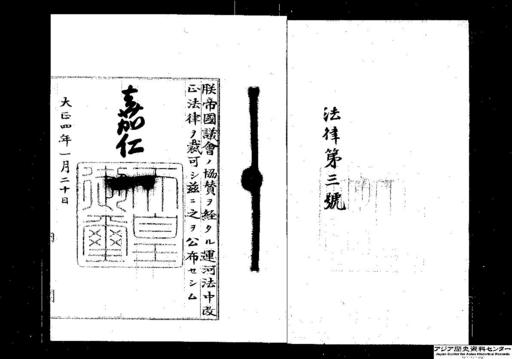 法律第三號
朕帝國議會ノ協贊ヲ經タル運河法中改
正法律ヲ裁可シ茲ニ之ヲ公布セシム
嘉仁
天皇御璽
大正四年一月二十日
アジア歴史資料センター
Japan Center for Asian Historical Records